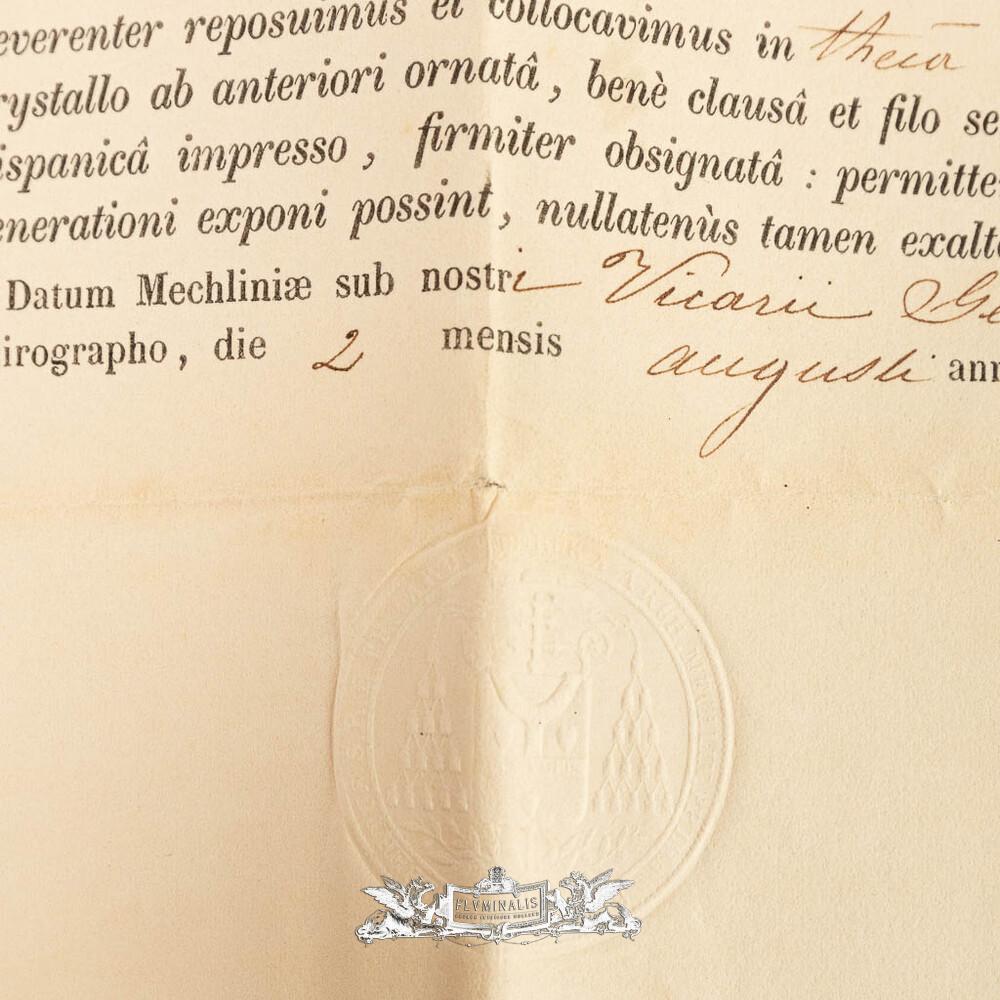 everenter reposuimus et collocavimus in theca
rystallo ab anteriori ornatâ, benè clausâ et filo se
ispanicâ impresso, firmiter obsignatâ : permitte
enerationi exponi possint, nullatenùs tamen exalt
Datum Mechliniæ sub nostri Vicarii Ge
irographo, die 2 mensis augusti ann
FLVMINALIS